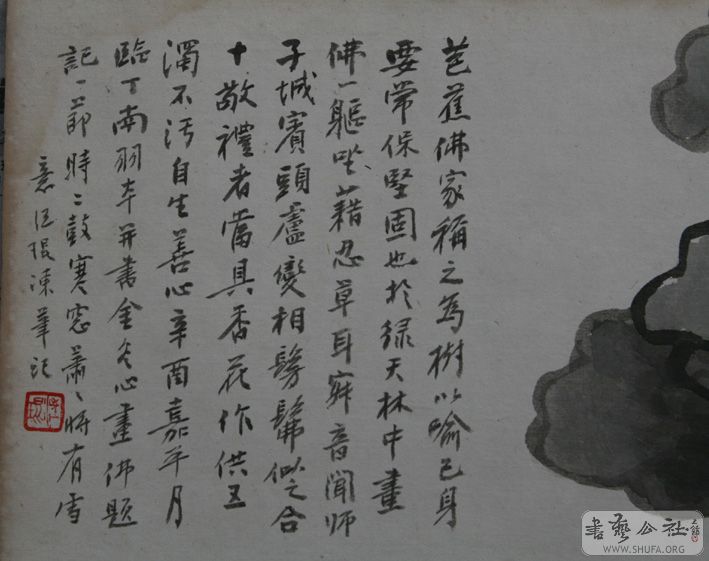 芭蕉佛家稱之為樹以喻己身
要常保堅固也於綠天林中畫
佛一軀坐藉忍草耳寂音聞師
子城賓頭盧變相髣髴似之合
十敬禮者當具香花作供五
濁不污自生善心辛酉嘉平月
臨丁南羽本并書金冬心畫佛題
記一節時二鼓寒窓蕭〻將有雪
意 呵凍筆記
書藝公社
WWW.SHUFA.ORG